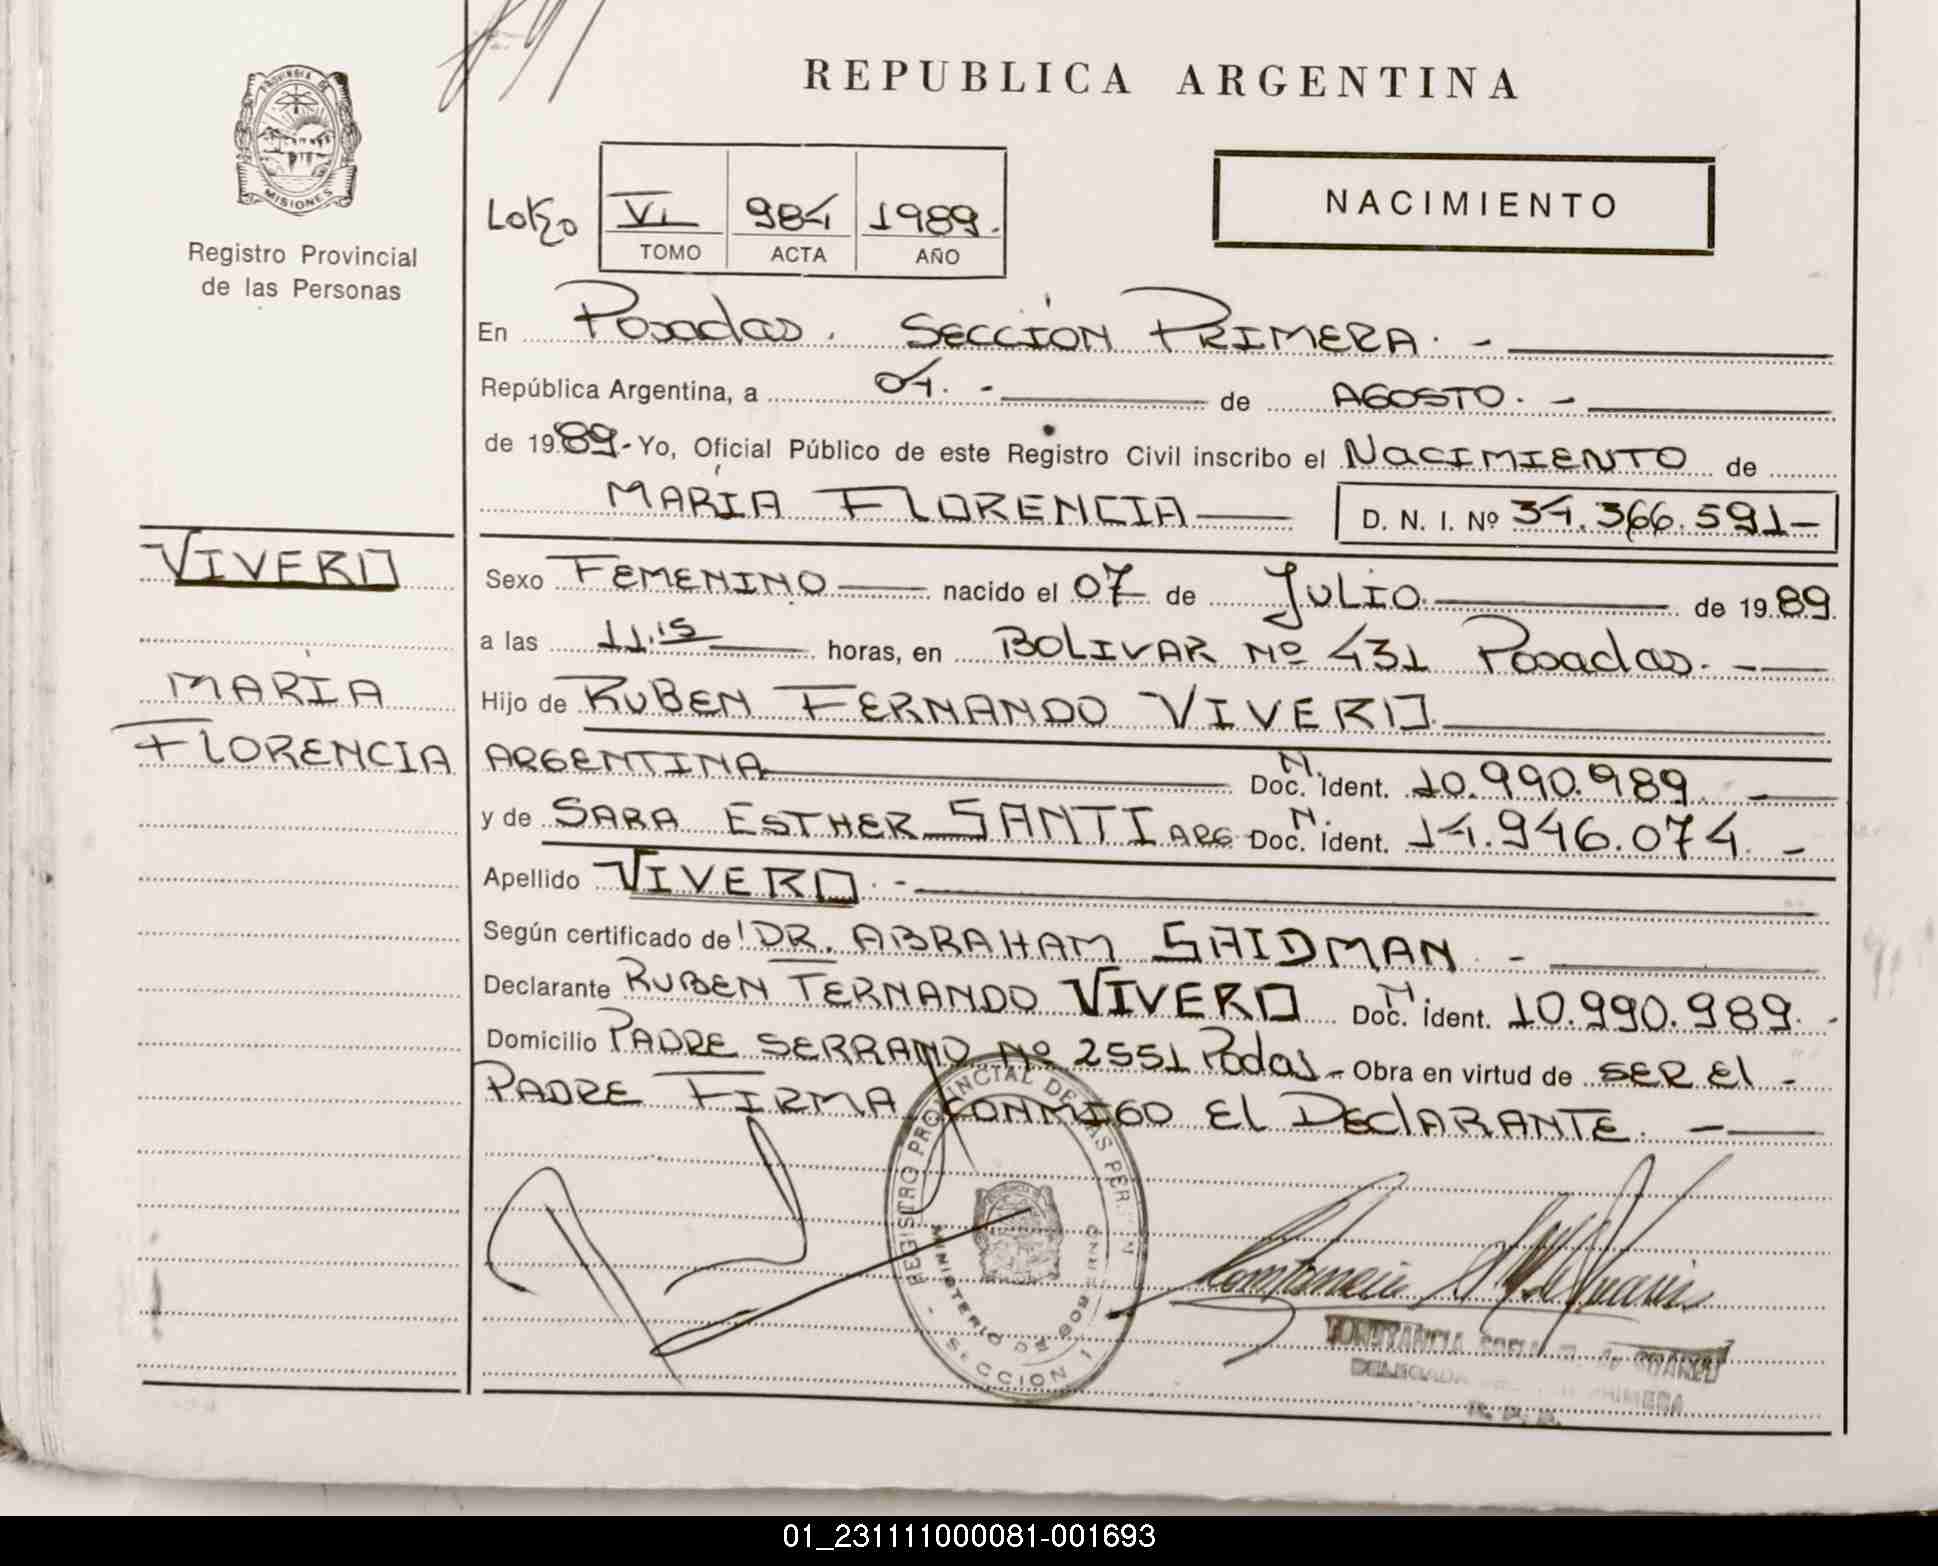 REPUBLICA ARGENTINA
PROVINCIA DE
MISIONES
Registro Provincial
de las Personas
VI 984 1989.
TOMO ACTA AÑO
NACIMIENTO
En Posadas. SECCIÓN PRIMERA. -
República Argentina, a 04. - de AGOSTO. -
de 1989.- Yo, Oficial Público de este Registro Civil inscribo el NACIMIENTO de
MARÍA FLORENCIA D. N. I. Nº 34.366.591-
VIVERO
MARÍA
FLORENCIA
Sexo FEMENINO nacido el 07 de JULIO de 1989.
a las 11.15 horas, en BOLIVAR Nº 431 Posadas. -
Hijo de RUBEN FERNANDO VIVERO
ARGENTINA Doc. N. Ident. 10.990.989
y de SARA ESTHER SANTI ARG Doc. N. Ident. 14.946.074. -
Apellido VIVERO. -
Según certificado de DR. ABRAHAM SAIDMAN. -
Declarante RUBEN FERNANDO VIVERO Doc. N Ident. 10.990.989. -
Domicilio PADRE SERRANO Nº 2551 Podas - Obra en virtud de SER El -
PADRE FIRMA CONMIGO El DEClARANTE. -
REGISTRO PROVINCIAL DE LAS PER
MINISTERIO DE GOBIERNO
- SECCION 1 -
CONSTANCIA
DELEGADA PRIMERA
R. P. P.
01_231111000081-001693